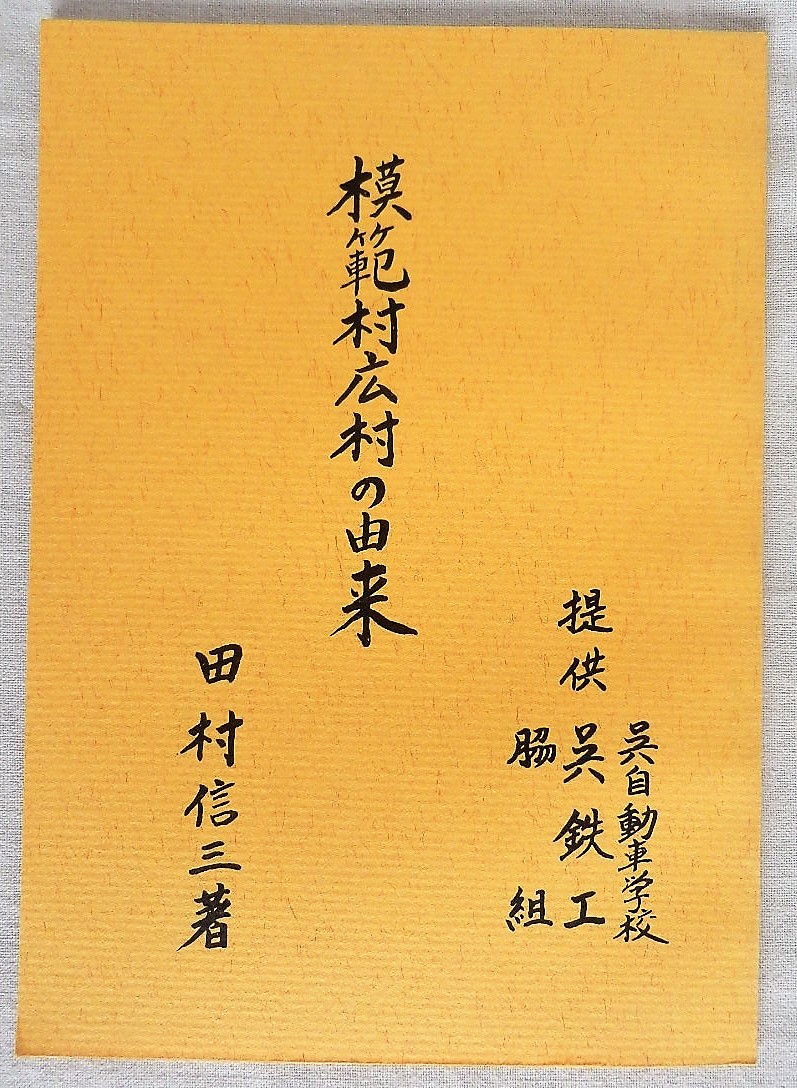 呉自動車学校
提供 呉鉄工
脇組
模範村広村の由来
田村信三著